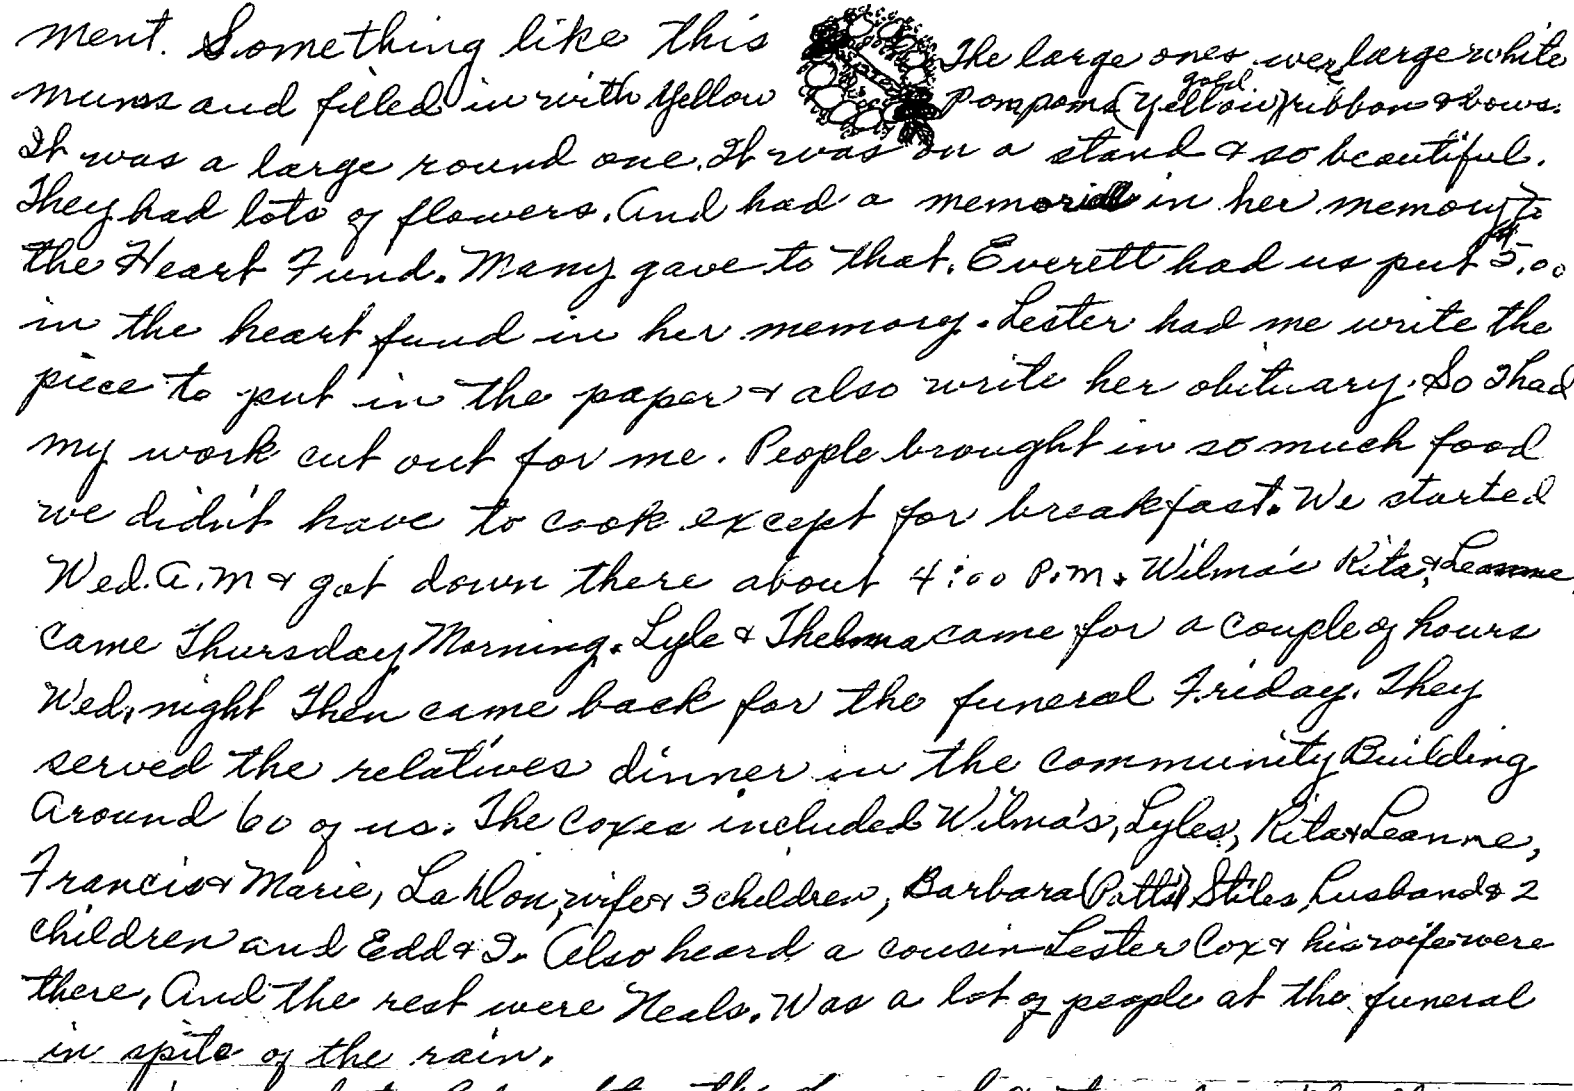 ment. Something like this The large ones were large white
mums and filled in with yellow pompoms (yellow) gold ribbon & bows.
It was a large round one. It was on a stand & so beautiful.
They had lots of flowers. And had a memorial in her memory to
the Heart Fund. Many gave to that. Everett had us put $5.00
in the heart fund in her memory. Lester had me write the
piece to put in the paper & also write her obituary. So I had
my work cut out for me. People brought in so much food
we didn't have to cook except for breakfast. We started
Wed. A.M & got down there about 4:00 P.M. Wilma's Rita & Leanne
came Thursday Morning. Lyle & Thelma came for a couple of hours
Wed. night Then came back for the funeral Friday. They
served the relatives dinner in the community Building
Around 60 of us. The Coxes included Wilma's, Lyles, Rita & Leanne,
Francis & Marie, LaVon, wife & 3 children, Barbara (Patti) Stiles, husband & 2
children and Edd & I. Also heard a cousin Lester Cox & his wife were
there, And the rest were Neals. Was a lot of people at the funeral
in spite of the rain.